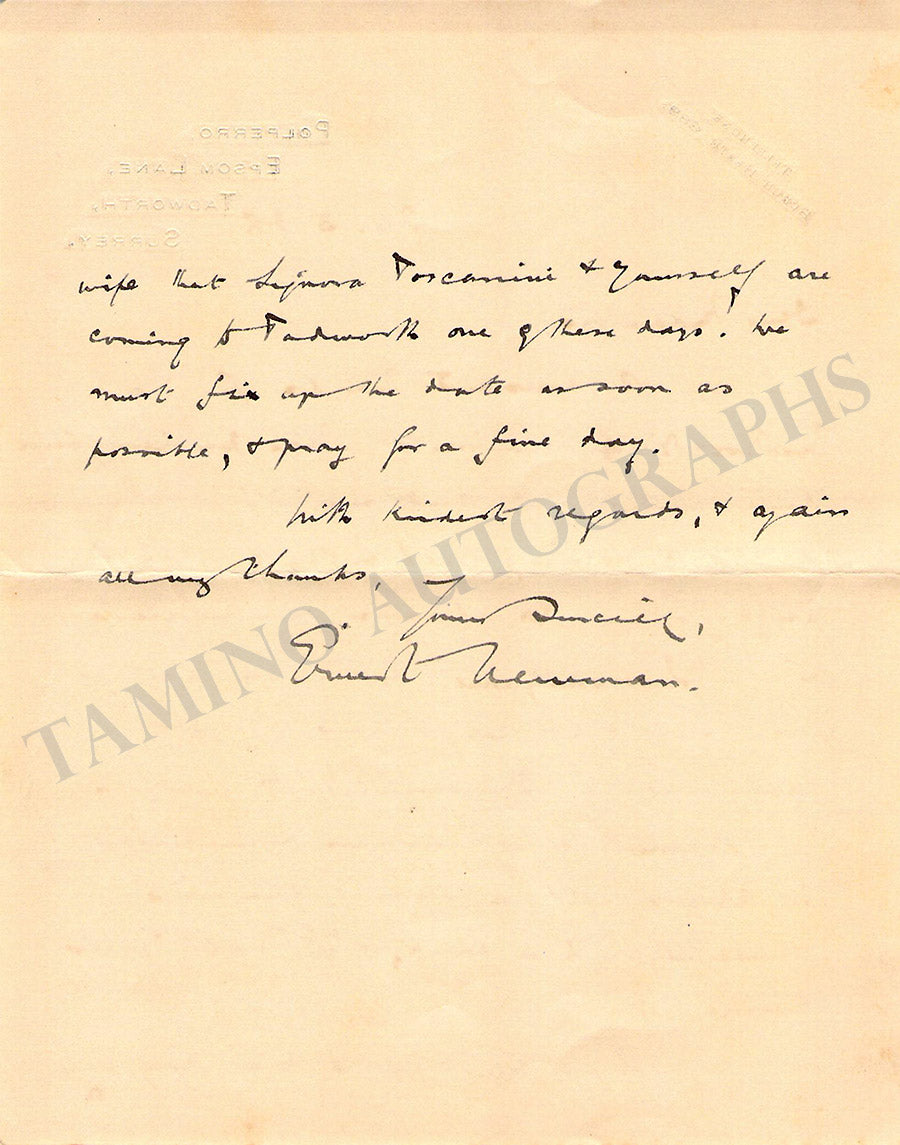 POLPERRO,
EPSOM LANE,
TADWORTH,
SURREY.
TELEPHONE
BURGH HEATH
wife that Signora Toscanini & yourself are
coming to Tadworth one of these days! We
must fix up the date as soon as
possible, & pray for a fine day.
With kindest regards, & again
all my thanks,
Yours sincerely,
Ernest Newman.
TAMINO AUTOGRAPHS